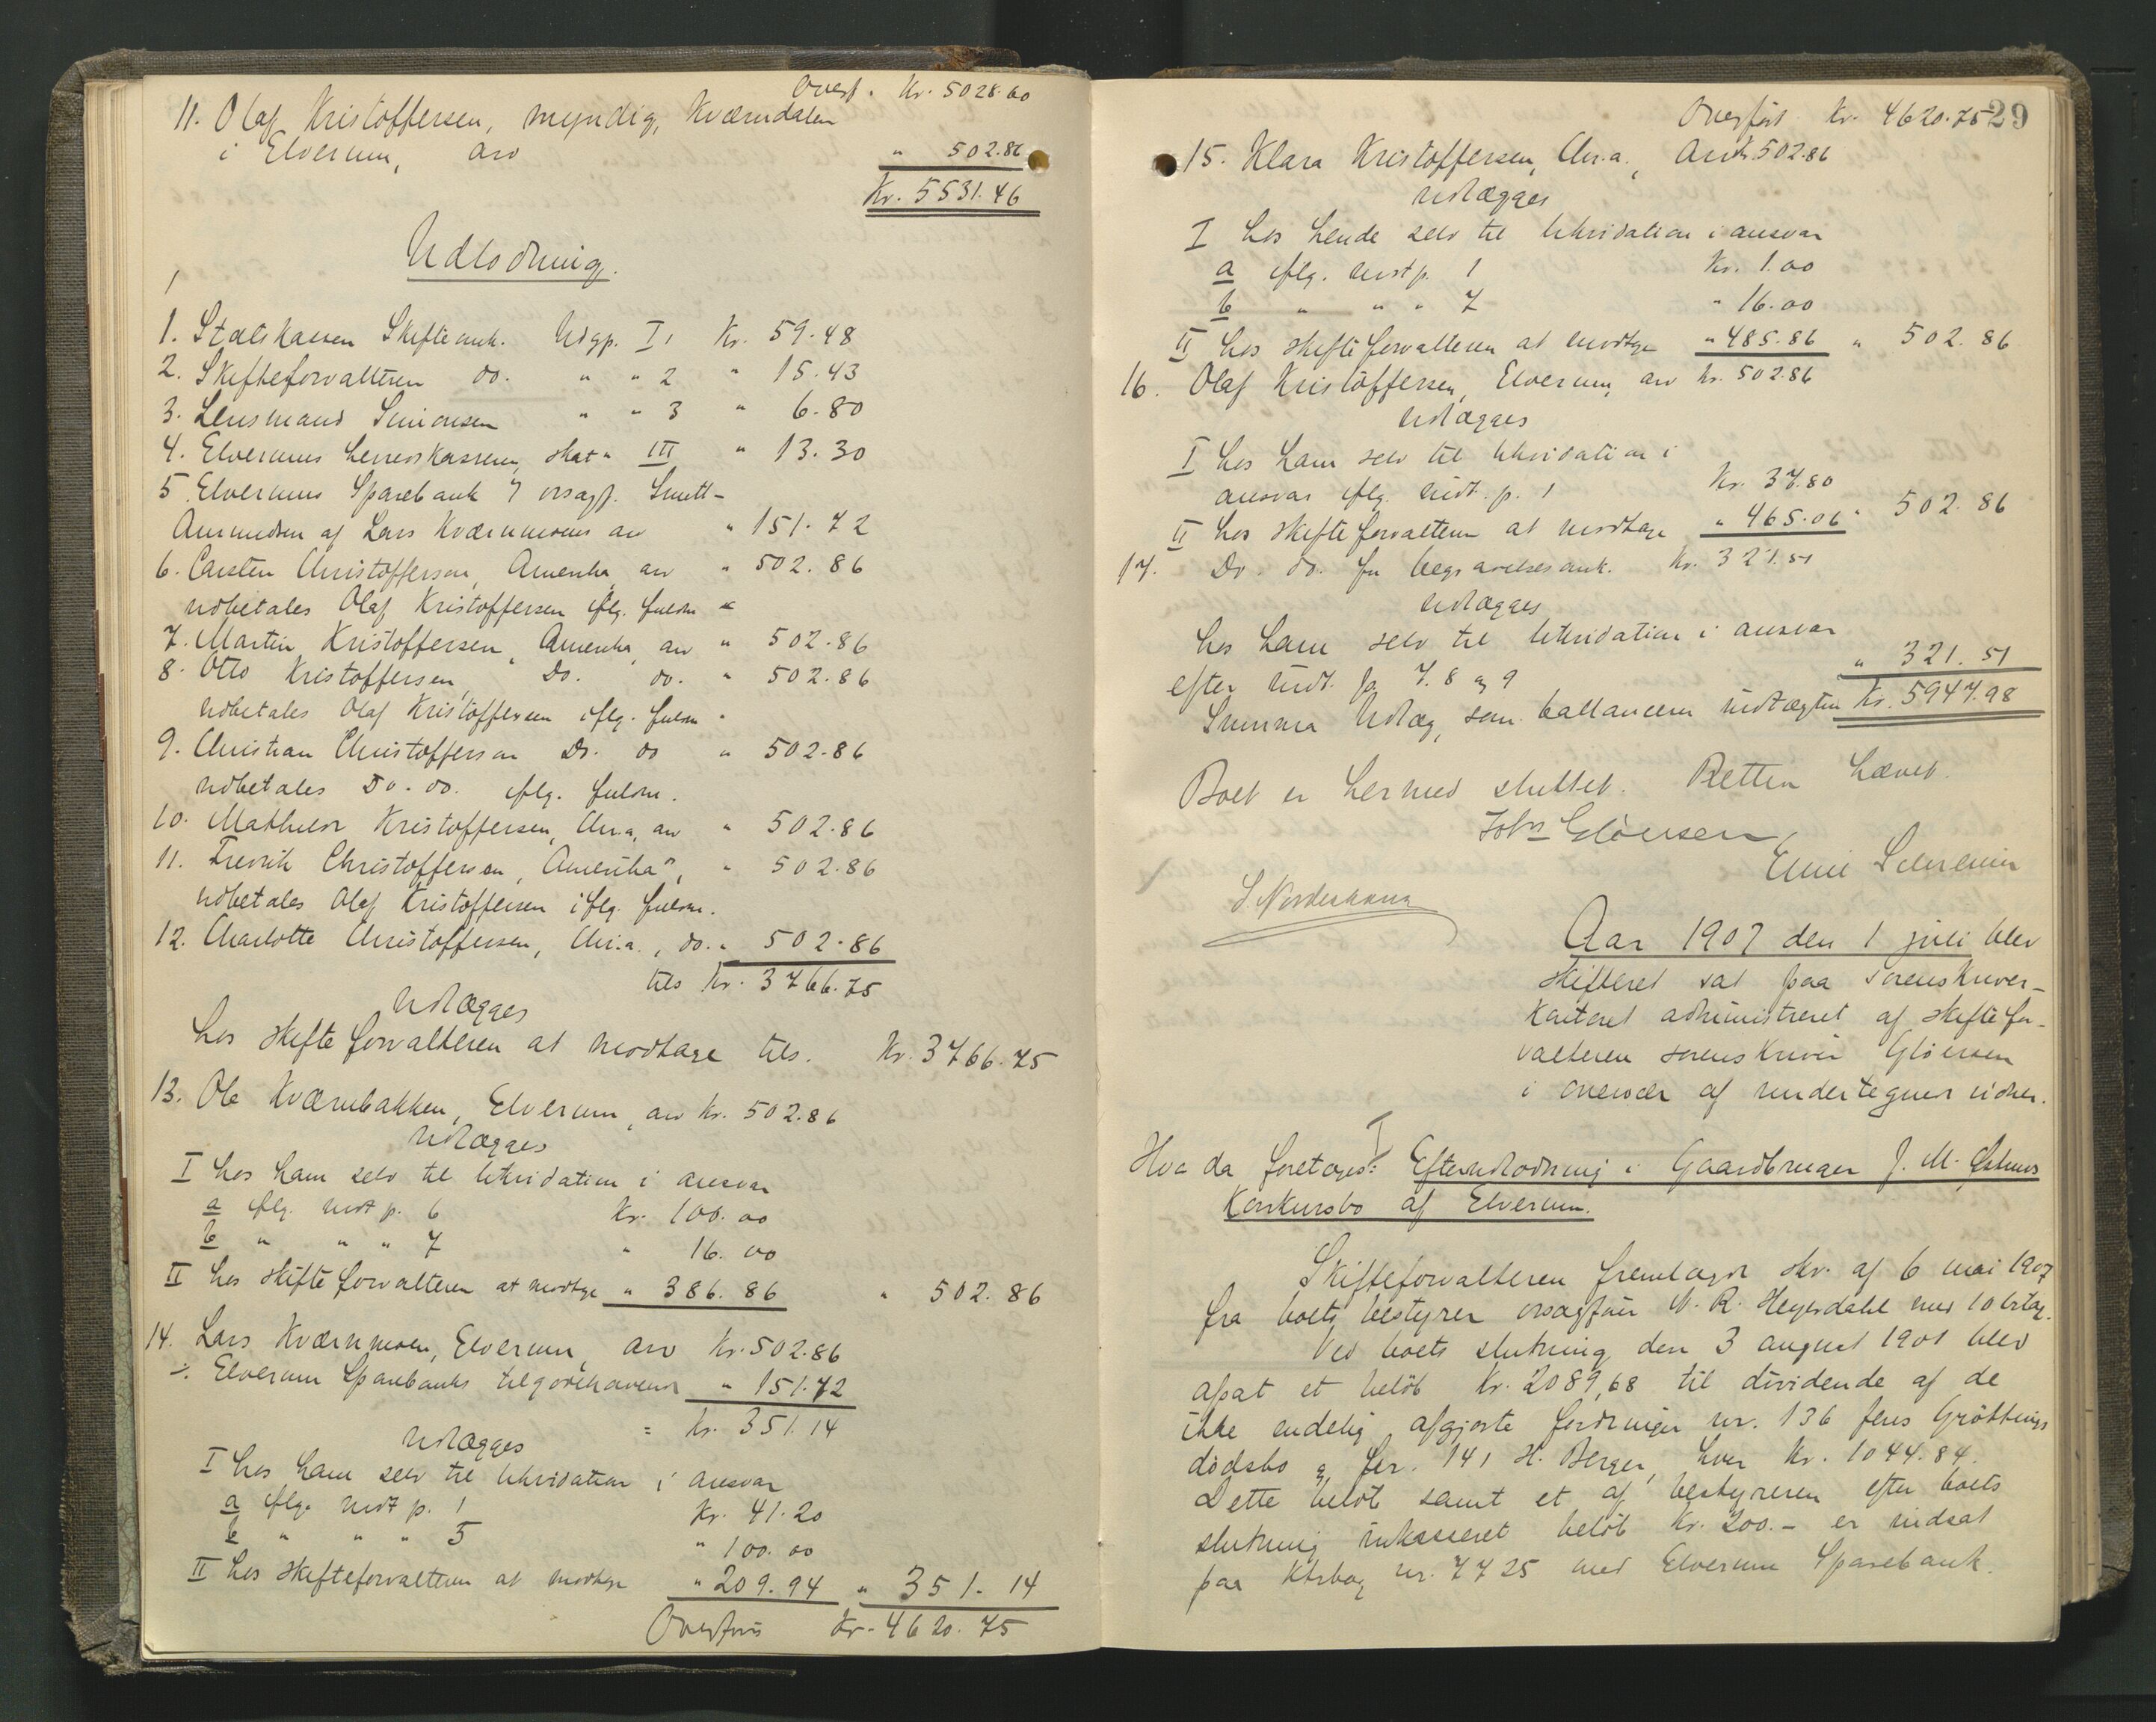 Overf. Kr. 5028.60
11. Olaf Kristoffersen, myndig, Kværndalen
i Elverum, arv " 502.86
Kr. 5531.46
Udlodning.
1. Statskassen Skifteomk. Udgp. I, Kr. 59.48
2. Skifteforvalteren do. " " 2 " 15.43
3. Lensmand Simonsen " " 3 " 6.80
4. Elverums herredskasserer, skat " III " 13.30
5. Elverums Sparebank v/ orsagf. Smett-
Amundsen af Lars Kværnmoens arv " 151.72
6. Carsten Christofferson, Amerika, arv " 502.86
udbetales Olaf Kristoffersen iflg. fuldm
7. Martin Kristoffersen, Amerika, arv " 502.86
8. Otto Kristoffersen, Do. do. " 502.86
udbetales Olaf Kristoffersen iflg. fuldm.
9. Christian Christofferson Do. do " 502.86
udbetales Do. do. iflg. fuldm.
10. Mathilde Kristoffersen, Chr.a, arv " 502.86
11. Fredrik Christofferson, Amerika ", " 502.86
udbetales Olaf Kristoffersen iflg. fuldm.
12. Charlotte Christoffersen, Chr.a., do. " 502.86
tils Kr. 3766.75
Udlægges
hos skifteforvalteren at modtage tils. Kr. 3766.75
13. Ole Kværnbakken, Elverum, arv Kr. 502.86
Udlægges
I hos ham selv til likvidation i ansvar
a iflg. indt p. 6 Kr. 100.00
b " " " 7 " 16.00
II hos skifteforvalteren at modtge " 386.86 " 502.86
14. Lars Kværnmoen, Elverum, arv Kr. 502.86
÷ Elverum Sparebanks tilgodehavende " 151.72
= Kr. 351.14
Udlægges
I hos ham selv til likvidation i ansvar
a iflg. indt p. 1 Kr. 41.20
b " " " 5 " 100.00
II hos skifteforvalteren at modtge " 209.94 " 351.14
Overføris Kr. 4620.75
Overført Kr. 4620.75 29
15. Klara Kristoffersen, Chr.a., Arv Kr. 502.86
Udlægges
I hos hende selv til likvidation i ansvar
a iflg. indt p. 1 Kr. 1.00
b " " " 7 " 16.00
II hos skifteforvalteren at modtge " 485.86 " 502.86
16. Olaf Kristoffersen, Elverum, arv Kr. 502.86
Udlægges
I hos ham selv til likvidation i
ansvar iflg. indt. p. 1 Kr. 37.80
II hos skifteforvalteren at modtage " 465.06 " 502.86
17. Do. do. for begravelsesomk. Kr. 321.51
Udlægges
hos ham selv til likvidation i ansvar
efter indt. p. 7. 8 og 9 " 321.51
Summa Udlæg, som ballancerer indtægten Kr. 5947.98
Boet er hermed sluttet. Retten hævet.
Johs Gløersen
S. Nordenhaug
Aar 1907 den 1 juli blev
skifteret sat paa sorenskriver-
kontoret administreret af skiftefor-
valteren sorenskriver Gløersen
i overvær af undertegnet vidner.
Hva da foretoges: Efterudlodning i Gaardbruger J. M.
Konkursbo af Elverum.
Skifteforvalteren fremlagde skr. af 6 mai 1907
fra boets bestyrer orsagfører N. R. Heyerdahl med 10 bilag.
Ved boets slutning den 3 august 1901 blev
afsat et beløb Kr. 2089,68 til dividende af de
ikke endelig afgjorte fordringer nr. 136 Jens Grøttings
dødsbo og for. 141 H. Berger, hver Kr. 1044.84.
Dette beløb samt et af bestyreren efter boets
slutning inkasseret beløb Kr. 200.- er indsat
paa Ktrbog nr. 7725 med Elverum Sparebank.